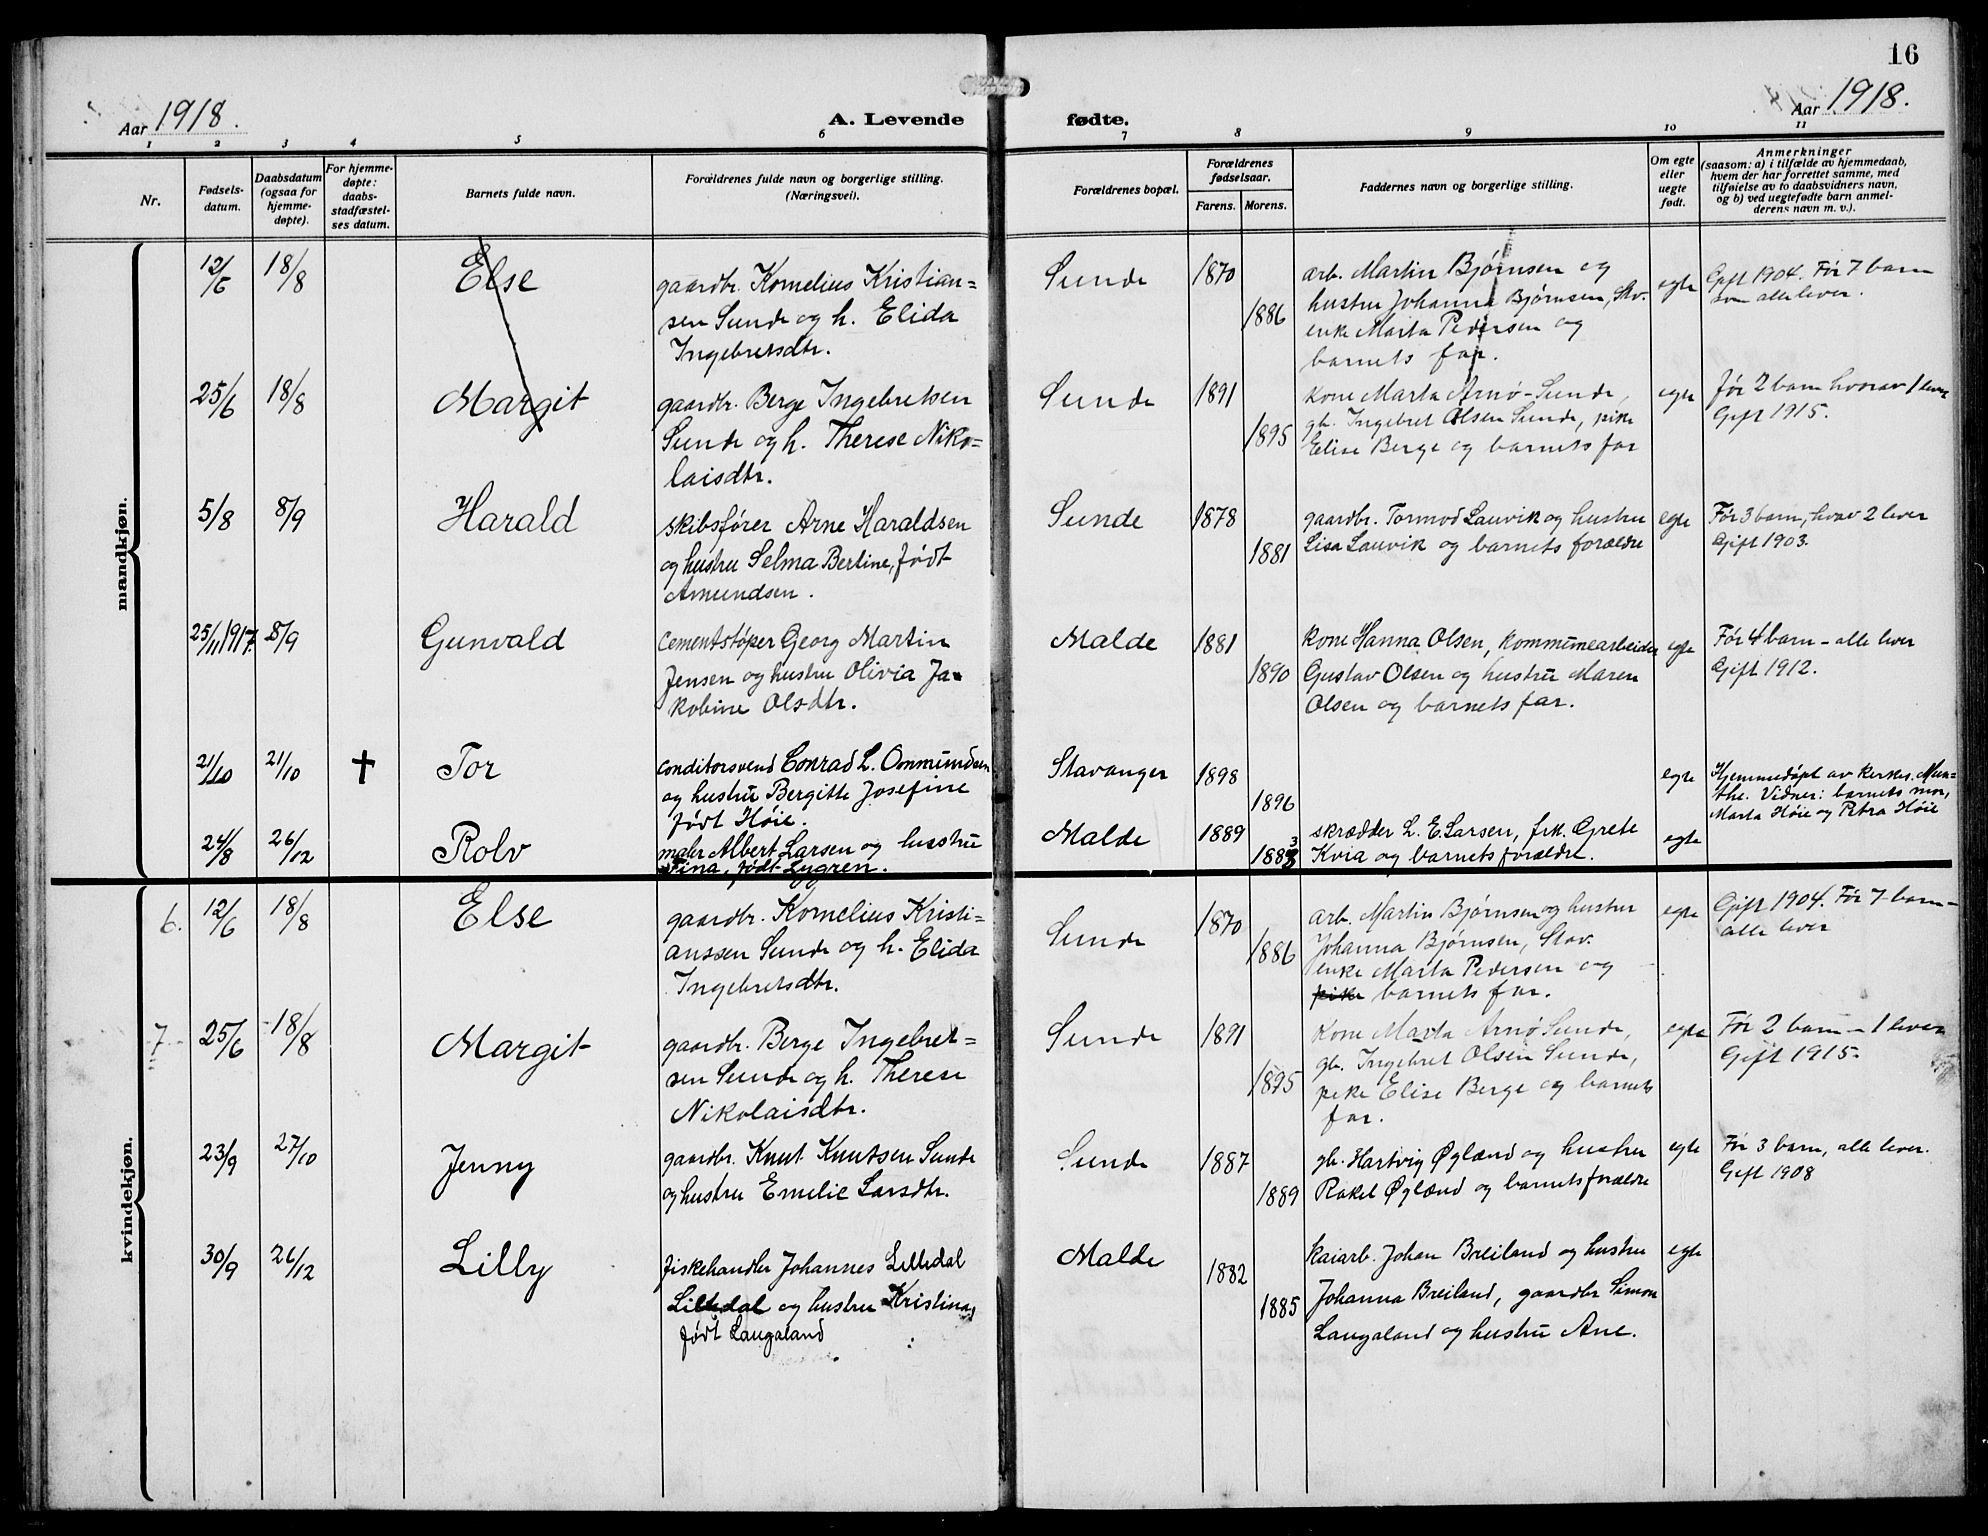 16
Aar 1918.
A. Levende fødte.
Aar 1918.
1 2 3 4 5 6 7 8 9 10 11
Nr.
Fødsels-
datum.
Daabsdatum
(ogsaa for
hjemme-
døpte).
For hjemme-
døpte:
daabs-
stadfæstel-
ses datum.
Barnets fulde navn.
Forældrenes fulde navn og borgerlige stilling.
(Næringsvei).
Forældrenes bopæl.
Forældrenes
fødselsaar.
Farens. Morens.
Faddernes navn og borgerlige stilling.
Om egte
eller
uegte
født.
Anmerkninger
(saasom: a) i tilfælde av hjemmedaab,
hvem der har forrettet samme, med
tilføielse av to daabsvidners navn,
og b) ved uegtefødte barn anmel-
derens navn m. v.).
mandkjøn.
12/6 18/8 Else
gaardbr. Kornelius Kristian=
sen Sunde og h. Elida
Ingebretsdtr.
Sunde 1870
1886
arb. Martin Bjørnsen og
hustru Johanna Bjørnsen, Stv.
enke Marta Pedersen og
barnets far.
egte
Gift 1904. Før 7 barn
som alle lever.
25/6 18/8 Margit
gaardbr. Berge Ingebretsen
Sunde og h. Therese Niko=
laisdtr.
Sunde 1891
1895
Kone Marta Arnø-Sunde,
gb. Ingebret Olsen Sunde, pike
Elise Berge og barnets far
egte
Før 2 barn hvorav 1 lever
Gift 1915.
5/8 8/9 Harald
skibsfører Arne Haraldsen
og hustru Selma Bertine, født
Amundsen.
Sunde 1878
1881
gaardbr. Tormod Lauvik og hustru
Lisa Lauvik og barnets forældre
egte
Før 3 barn, hvav 2 lever
Gift 1903.
25/11 1917. 8/9 Gunvald
Cementstøper Georg Martin
Jensen og hustru Olivia Ja-
kobine Olsdtr.
Malde 1881
1890
kone Hanna Olsen, kommunearbeider
Gustav Olsen og hustru Maren
Olsen og barnets far.
egte
Før 4 barn - alle lever
Gift 1912.
21/10 21/10 † Tor
conditorsvend Conrad L. Ommundsen
og hustru Bergitte Josefine
født Høie.
Stavanger 1898
1896
egte
Hjemmedøpt av perkap. Mun-
the. Vidner: barnets mor,
Marta Høie og Petra Høie
24/8 26/12 Rolv
maler Albert Larsen og hustru
Tina, født Lygren.
Malde 1889
1883
skrædder L. E. Larsen, frk. Grete
Kvia og barnets forældre.
egte
kvindekjøn.
6. 12/6 18/8 Else
gaardbr. Kornelius Kristi=
anssen Sunde og h. Elida
Ingebretsdtr.
Sunde 1870
1886
arb. Martin Bjørnsen og hustru
Johanna Bjørnsen, Stav.
enke Marta Pedersen og
pike barnets far.
egte
Gift 1904. Før 7 barn -
alle lever
7. 25/6 18/8 Margit
gaardbr. Berge Ingebret=
sen Sunde og h. Therese
Nikolaisdtr.
Sunde 1891
1895
Kone Marta Arnø Sunde,
gb. Ingebret Olsen Sunde,
pike Elise Berge og barnets
far.
egte
Før 2 barn - 1 lever
Gift 1915.
23/9 27/10 Jenny
gaardbr. Knut Knutsen Sunde
og hustru Emelie Larsdtr.
Sunde 1887
1889
gb. Hartvig Øglænd og hustru
Rakel Øglænd og barnets forældre
egte
Før 3 barn, alle lever.
Gift 1908
30/9 26/12 Lilly
fiskehandler Johannes Lilledal
Lilledal og hustru Kristina,
født Laugaland
Malde 1882
1885
kaiarb. Johan Breiland og hustru
Johanna Breiland, gaardbr Simon
Laugaland og hustru Ane.
egte